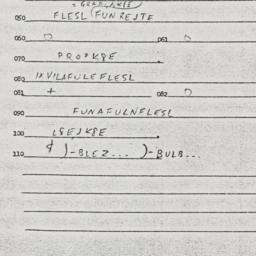 050 FLESL (FUNREJTE
060 O 061 O
070 PROPKBE
080 IXVILAFULEFLESL
081 + 082 O
090 FUNAFULNFLESL
100 LBEJKBE
110 )-BLEZ... )-BULB...